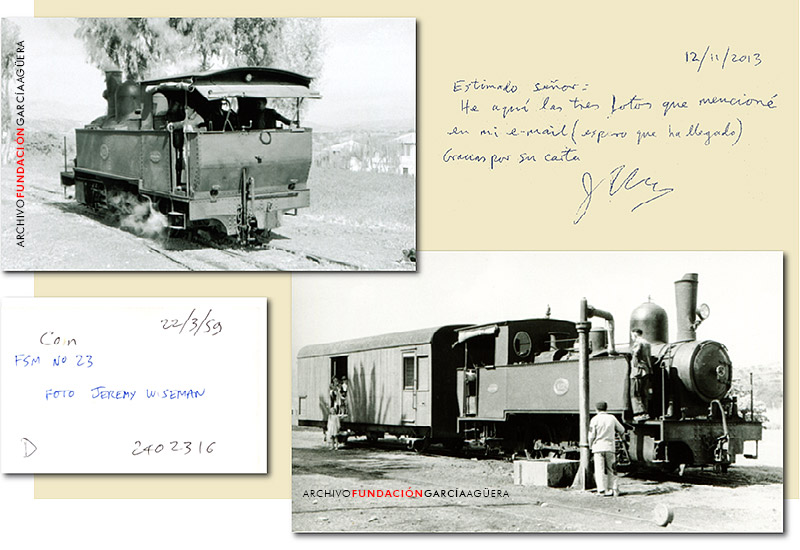 ARCHIVOFUNDACIÓNGARCÍAAGÜERA
12/11/2013
Estimado señor:
He aquí las tres fotos que mencioné
en mi e-mail (espero que ha llegado)
Gracias por su carta
22/3/59
Coin
FSM NO 23
FOTO JEREMY WISEMAN
D
2402316
ARCHIVOFUNDACIÓNGARCÍAAGÜERA